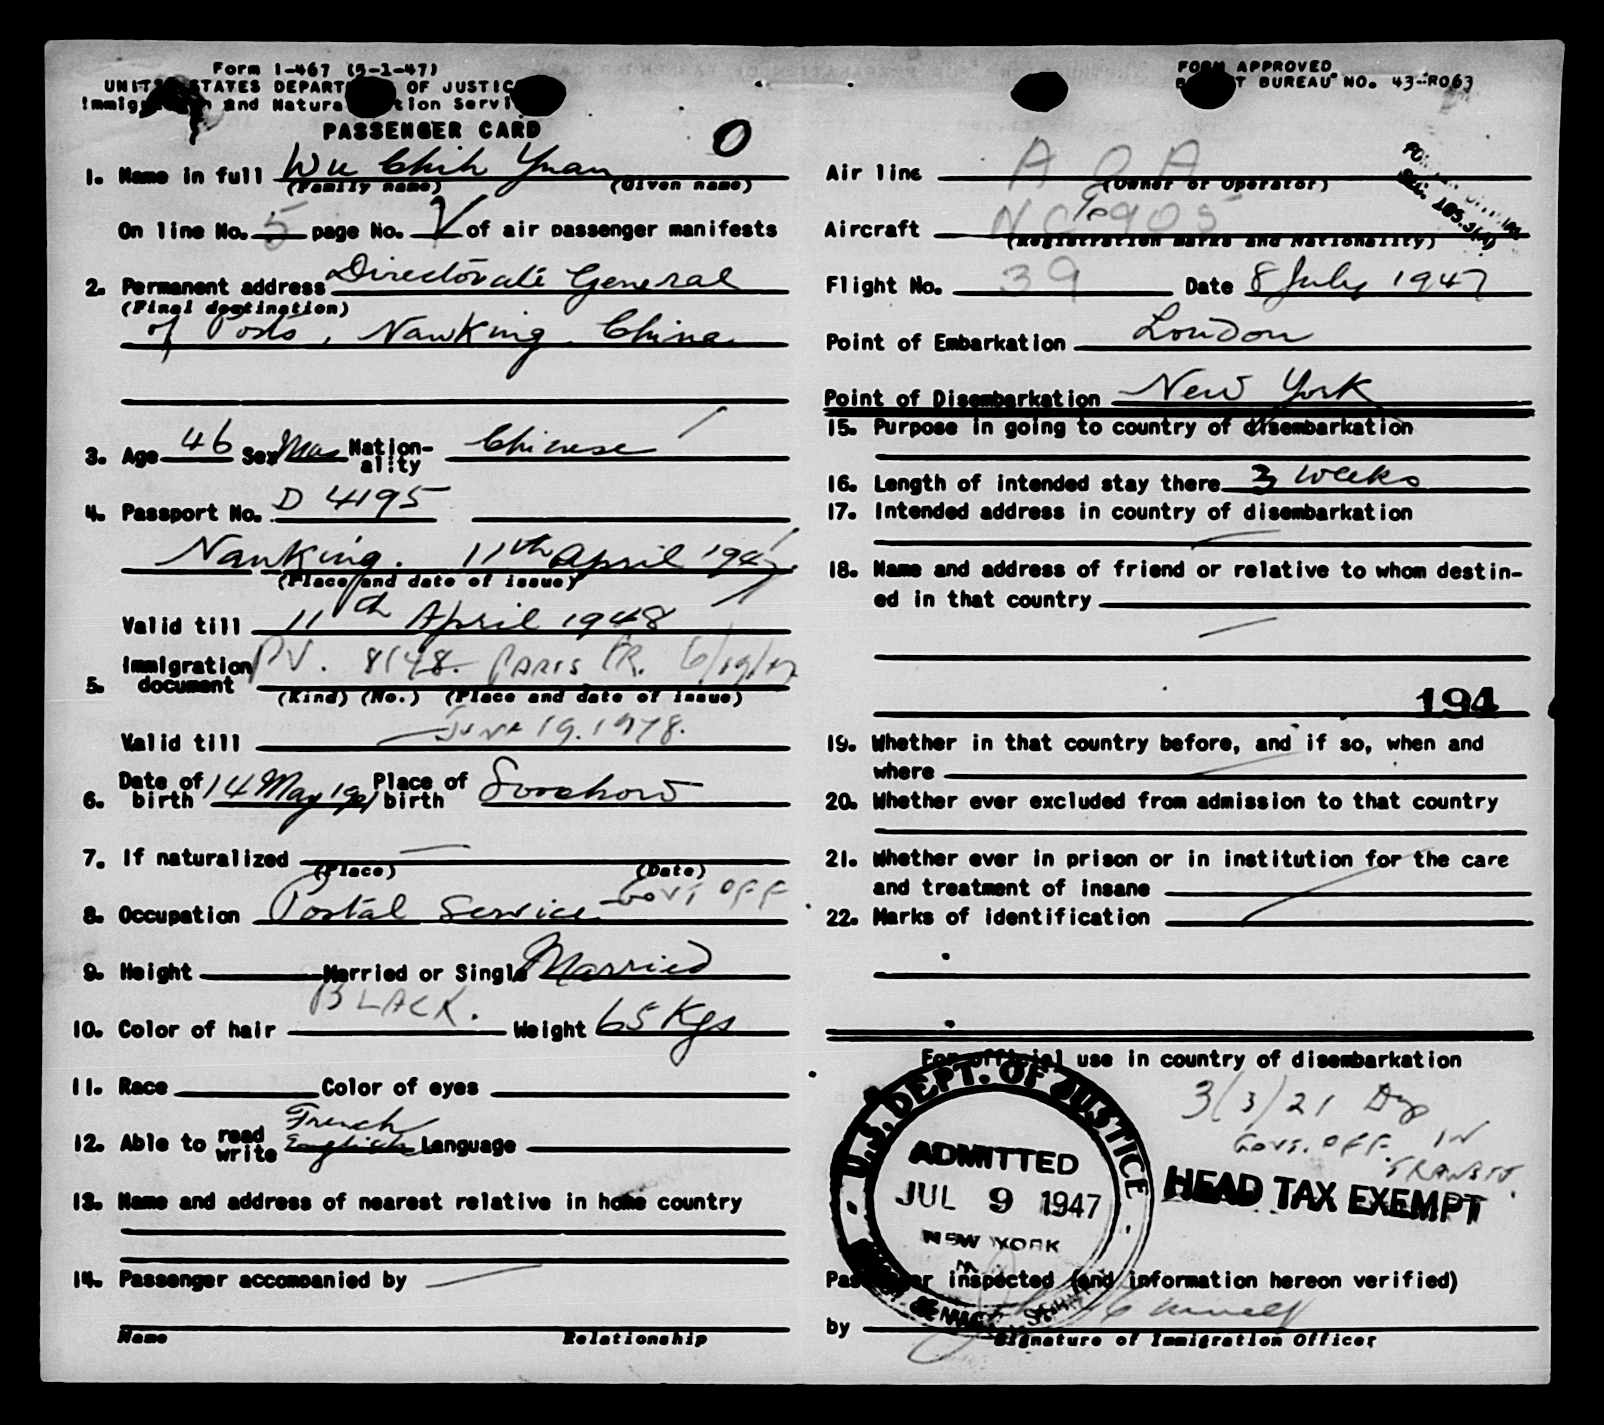 Form I-467 (5-1-47)
UNITED STATES DEPARTMENT OF JUSTICE
Immigration and Naturalization Service
PASSENGER CARD
0
1. Name in full Wu Chih Yuan
(Family name) (Given name)
On line No. 5 page No. 1 of air passenger manifests
2. Permanent address Directorate General
(Final destination)
of Posts, Nanking. China
3. Age 46 Sex Mas Nation-ality Chinese
4. Passport No. D 4195
Nanking. 11th April 1947.
(Place and date of issue)
Valid till 11th April 1948
5. Immigration document PV. 8148. PARIS FR. 6/19/47
(Kind) (No.) (Place and date of issue)
Valid till June 19. 1948.
6. Date of birth 14 May 1901 Place of birth Soochow
7. If naturalized
(Place) (Date)
8. Occupation Postal Service GOVT OFF
9. Height Married or Single Married
10. Color of hair BLACK. Weight 65 Kgs
11. Race Color of eyes
12. Able to read write French English Language
13. Name and address of nearest relative in home country
14. Passenger accompanied by
Name Relationship
FORM APPROVED
BUDGET BUREAU NO. 43-R063
Air line A O A
(Owner or Operator)
Aircraft NC 90905
(Registration marks and Nationality)
Flight No. 39 Date 8 July 1947
Point of Embarkation London
Point of Disembarkation New York
15. Purpose in going to country of disembarkation
16. Length of intended stay there 3 weeks
17. Intended address in country of disembarkation
18. Name and address of friend or relative to whom destin-
ed in that country
194
19. Whether in that country before, and if so, when and
where
20. Whether ever excluded from admission to that country
21. Whether ever in prison or in institution for the care
and treatment of insane
22. Marks of identification
For official use in country of disembarkation
3(3)21
GOVT. OFF. IN
TRANSIT.
HEAD TAX EXEMPT
U.S. DEPT. OF JUSTICE
ADMITTED
JUL 9 1947
NEW YORK
Passenger inspected (and information hereon verified)
by
Signature of Immigration Officer